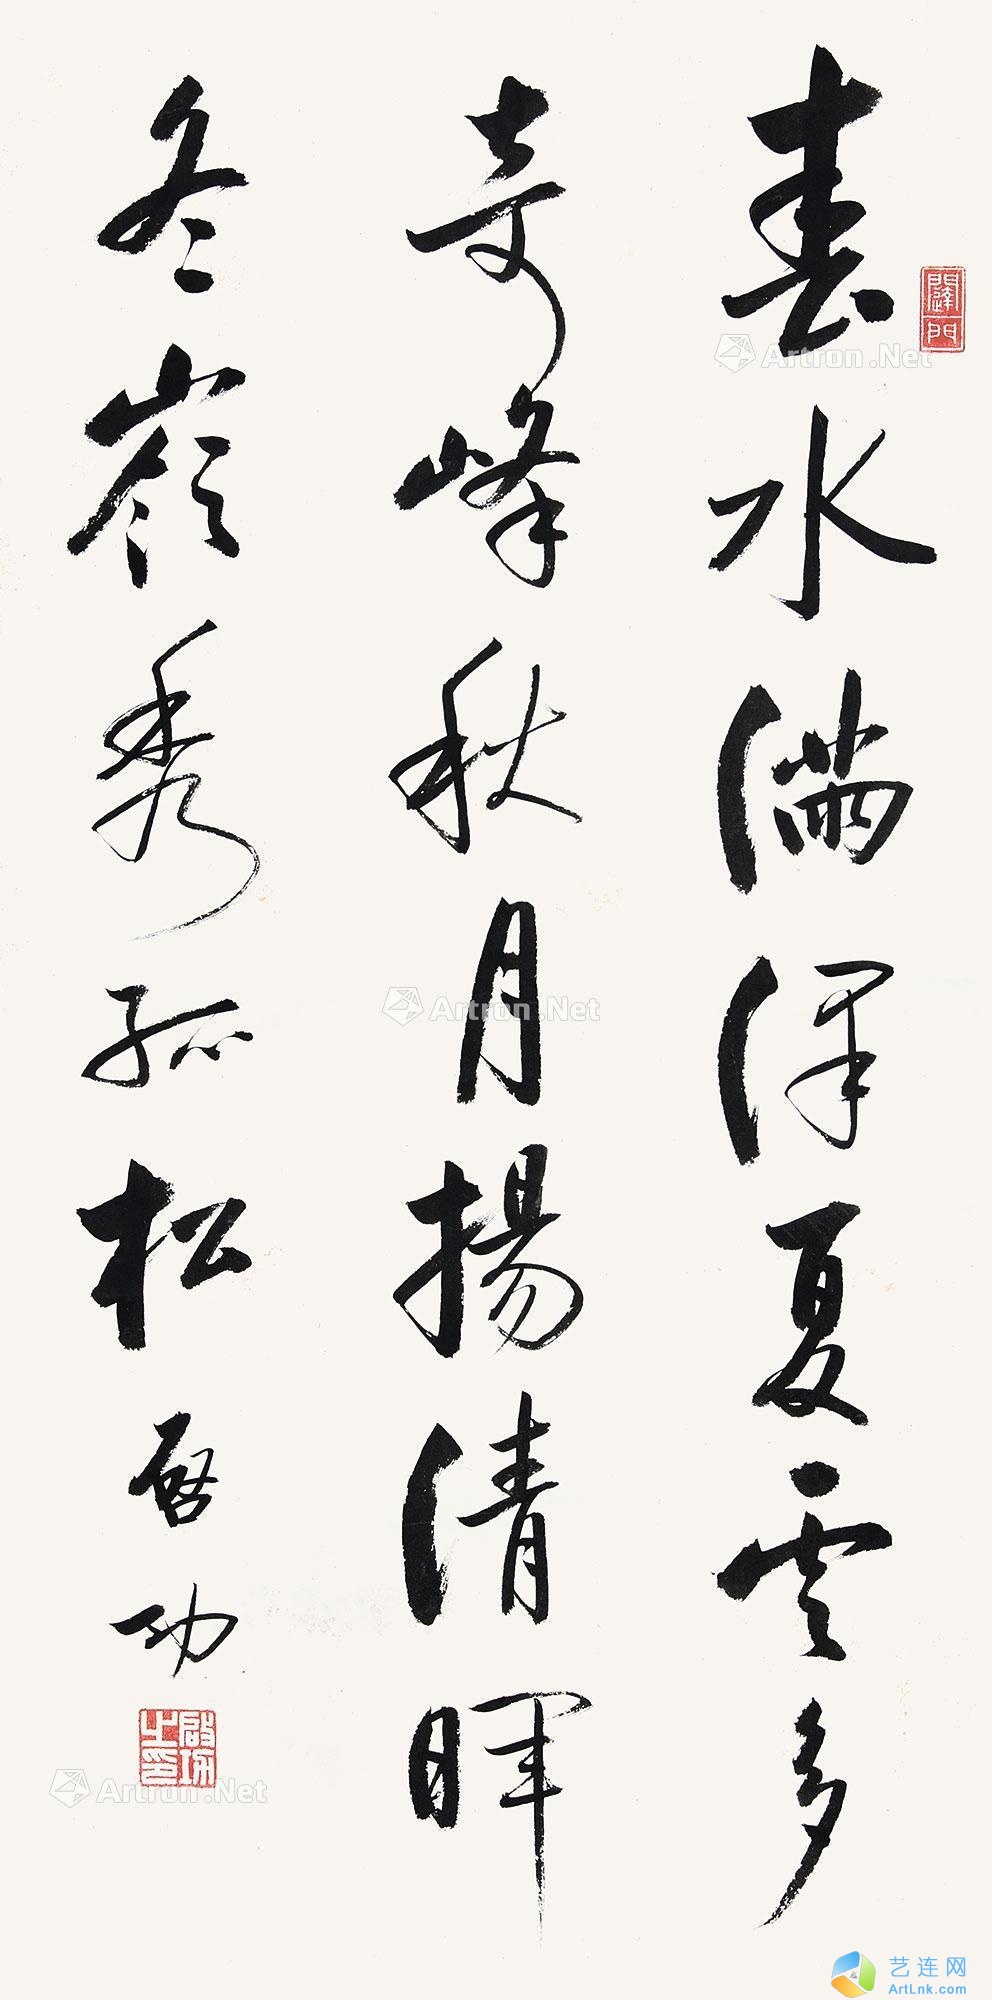 春水滿澤夏雲多
奇峰秋月揚清暉
冬嶺秀孤松
啟功
啟功之印
Artron.Net
Artron.Net
Artron.Net
艺连网
ArtLnk.com